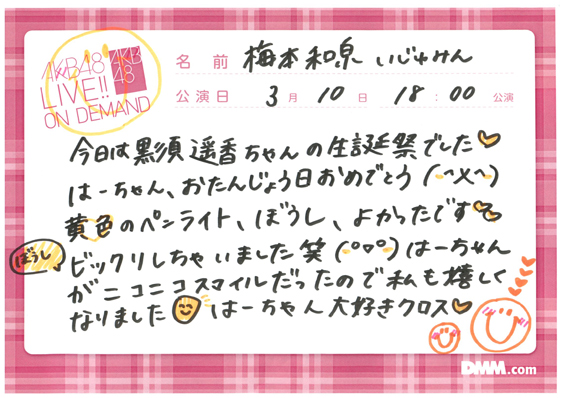 AKB48
LIVE!!
ON DEMAND
AKB
48
名前 梅本和泉 いじゅみん
公演日 3月10日 18:00公演
今日は黒須遥香ちゃんの生誕祭でした
はーちゃん、おたんじょう日おめでとう(^x^)
黄色のペンライト、ぼうし、よかったです
ぼうし
ビックリしちゃいました笑(°▽°)はーちゃん
がニコニコスマイルだったので私も嬉しく
なりました はーちゃん大好きクロス
DMM.com